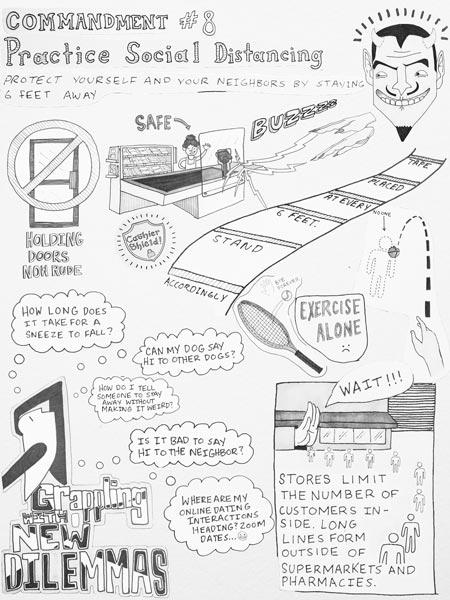 COMMANDMENT #8
Practice Social Distancing
PROTECT YOURSELF AND YOUR NEIGHBORS BY STAYING
6 FEET AWAY
SAFE
BUZZZZ
Cashier
Shield!
HOLDING
DOORS
NOW RUDE
TAPE
PLACED
AT EVERY
6 FEET.
STAND
ACCORDINGLY
NO ONE
BYE
FOREVER
EXERCISE
ALONE
HOW LONG DOES
IT TAKE FOR A
SNEEZE TO FALL?
CAN MY DOG SAY
HI TO OTHER DOGS?
HOW DO I TELL
SOMEONE TO STAY
AWAY WITHOUT
MAKING IT WEIRD?
IS IT BAD TO SAY
HI TO THE NEIGHBOR?
WHERE ARE MY
ONLINE DATING
INTERACTIONS
HEADING? ZOOM
DATES...
Grappling
WITH
NEW
DILEMMAS
WAIT!!!
STORES LIMIT
THE NUMBER OF
CUSTOMERS IN-
SIDE. LONG
LINES FORM
OUTSIDE OF
SUPERMARKETS AND
PHARMACIES.